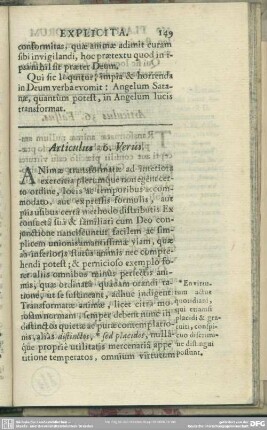 EXPLICITA. 149
conformitas, quæ animæ adimit curam
sibi invigilandi, hoc prætextu quod in i-
psa nihil sit præter Deum.
Qui sic loquitur, impia & horrenda
in Deum verba evomit: Angelum Sata-
næ, quantum potest, in Angelum lucis
transformat.
Articulus 26. Verus.
ANimæ transformatæ ad interiora
exercitia plerumque non egent cer-
to ordine, locis ac temporibus accom-
modato, aut expressis formulis, aut
pausibus certa methodo distributis Ex
consueta sua & familiari cum Deo con-
junctione nanciscuntur, facilem ac sim-
plicem unionis amantissimæ viam, quæ
ab inferioris status animis nec compre-
hendi potest; & pernicioso exemplo fo-
ret aliis omnibus minus perfectis ani-
mis, quas ordinata quadam orandi ra-
tione, ut se sustineant, adhuc indigent
Transformatæ animæ, licet citra mo-
rosam normam, semper debent nunc in-
distinctos quietæ ac puræ contemplatio-
nis, alias distinctos, * sed placidos, nullâ-
que propriæ utilitatis mercenaria appe-
titione temperatos, omnium virtutum
tum actus
quotidiani,
qui quamsi
placidi & gra-
tuiti, conspi-
cuo discrimi-
ne distingui
possunt.